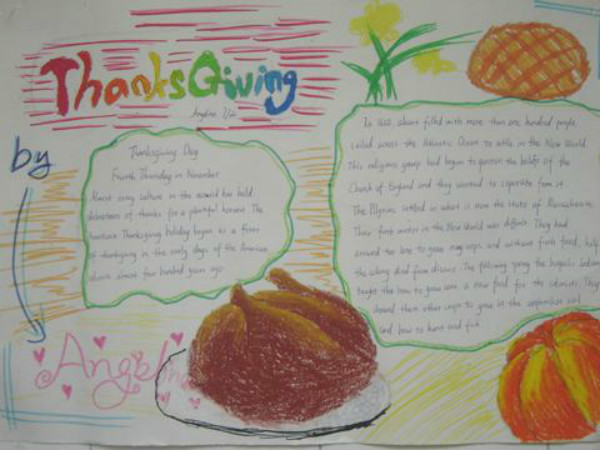 ThanksGiving
by
Thanksgiving Day
Fourth Thursday in November
Almost every culture in the world has held
celebrations of thanks for a plentiful harvest. The
American Thanksgiving holiday began as a feast
of thanksgiving in the early days of the American
almost four hundred years ago
In 1620, a filled with more than one hundred people
sailed across the Atlantic Ocean to settle in the New World
This religious group had begun to question the beliefs of the
Church of England and they wanted to separate from it.
The Pilgrims settled in what is now the state of Massachusetts
Their first winter in the New World was difficult. They had
arrived too late to grow many crops, and without fresh food, half
the colony died from disease. The following spring the Iroquois Indians
taught them how to grow corn a new food for the colonists. They
showed them other crops to grow in the unfamiliar soil
and how to hunt and fish
Angelina